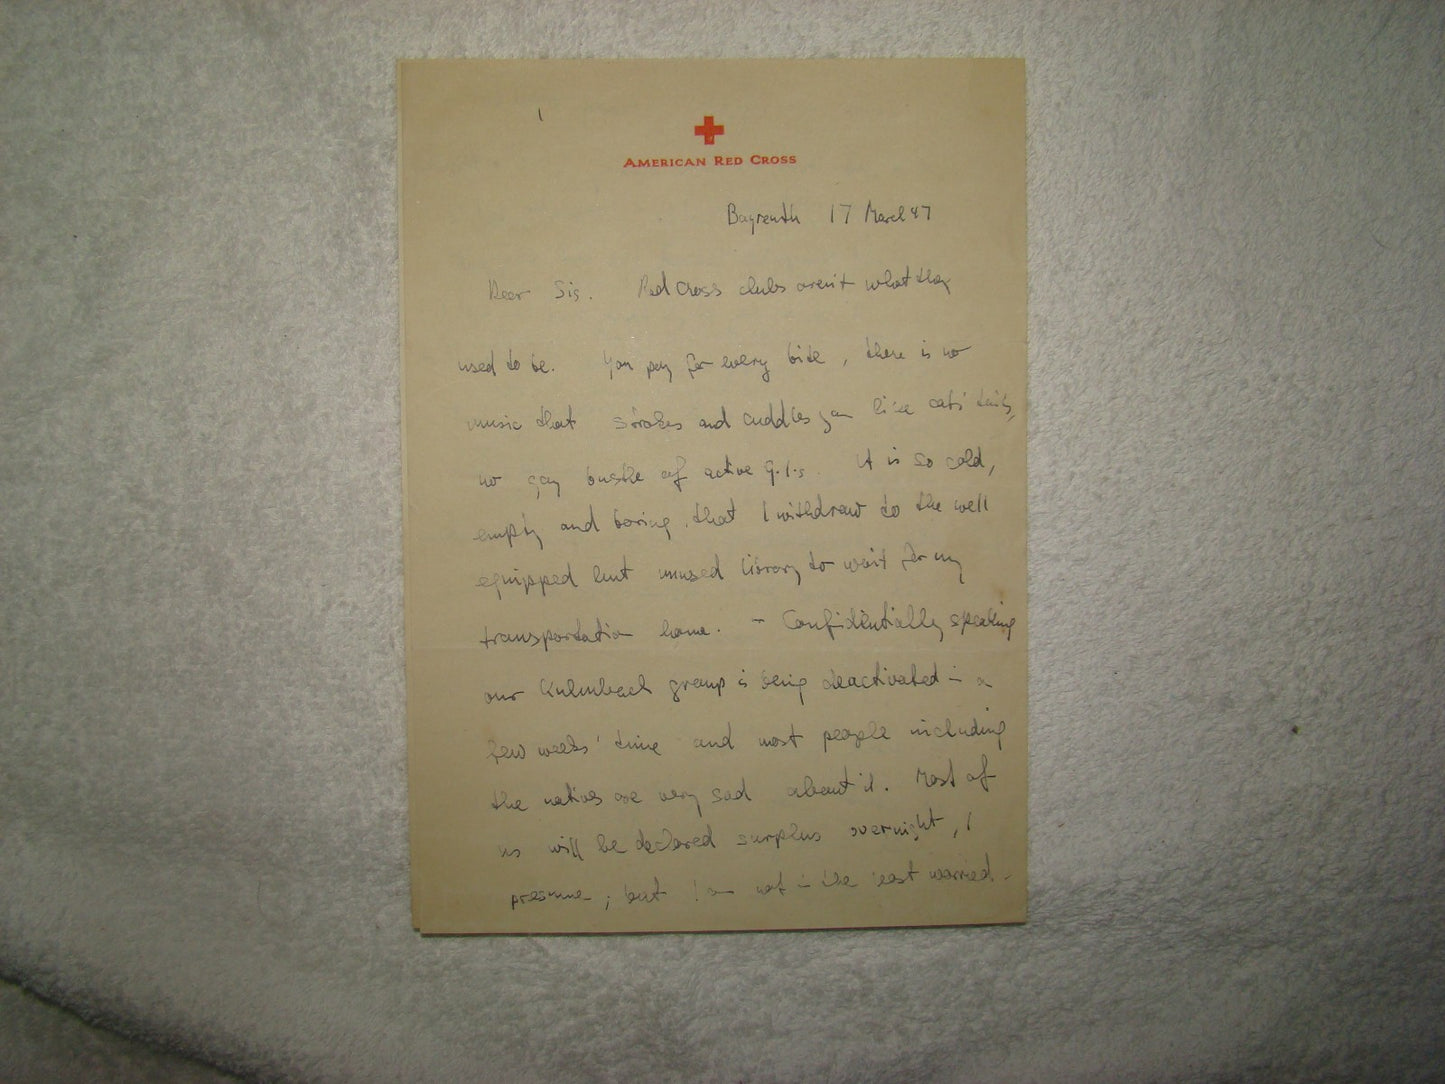 1
AMERICAN RED CROSS
Bayreuth 17 March 47
Dear Sis. Red Cross clubs aren't what they
used to be. You pay for every bite, there is no
music that strokes and cuddles you like cats' tails,
no gay bustle of active G.I.s. It is so cold,
empty and boring, that I withdraw to the well
equipped but unused library to wait for my
transportation home. - Confidentially speaking
our Kulmbach group is being deactivated in a
few weeks' time and most people including
the natives are very sad about it. Most of
us will be declared surplus overnight, I
presume; but I am not in the least worried.